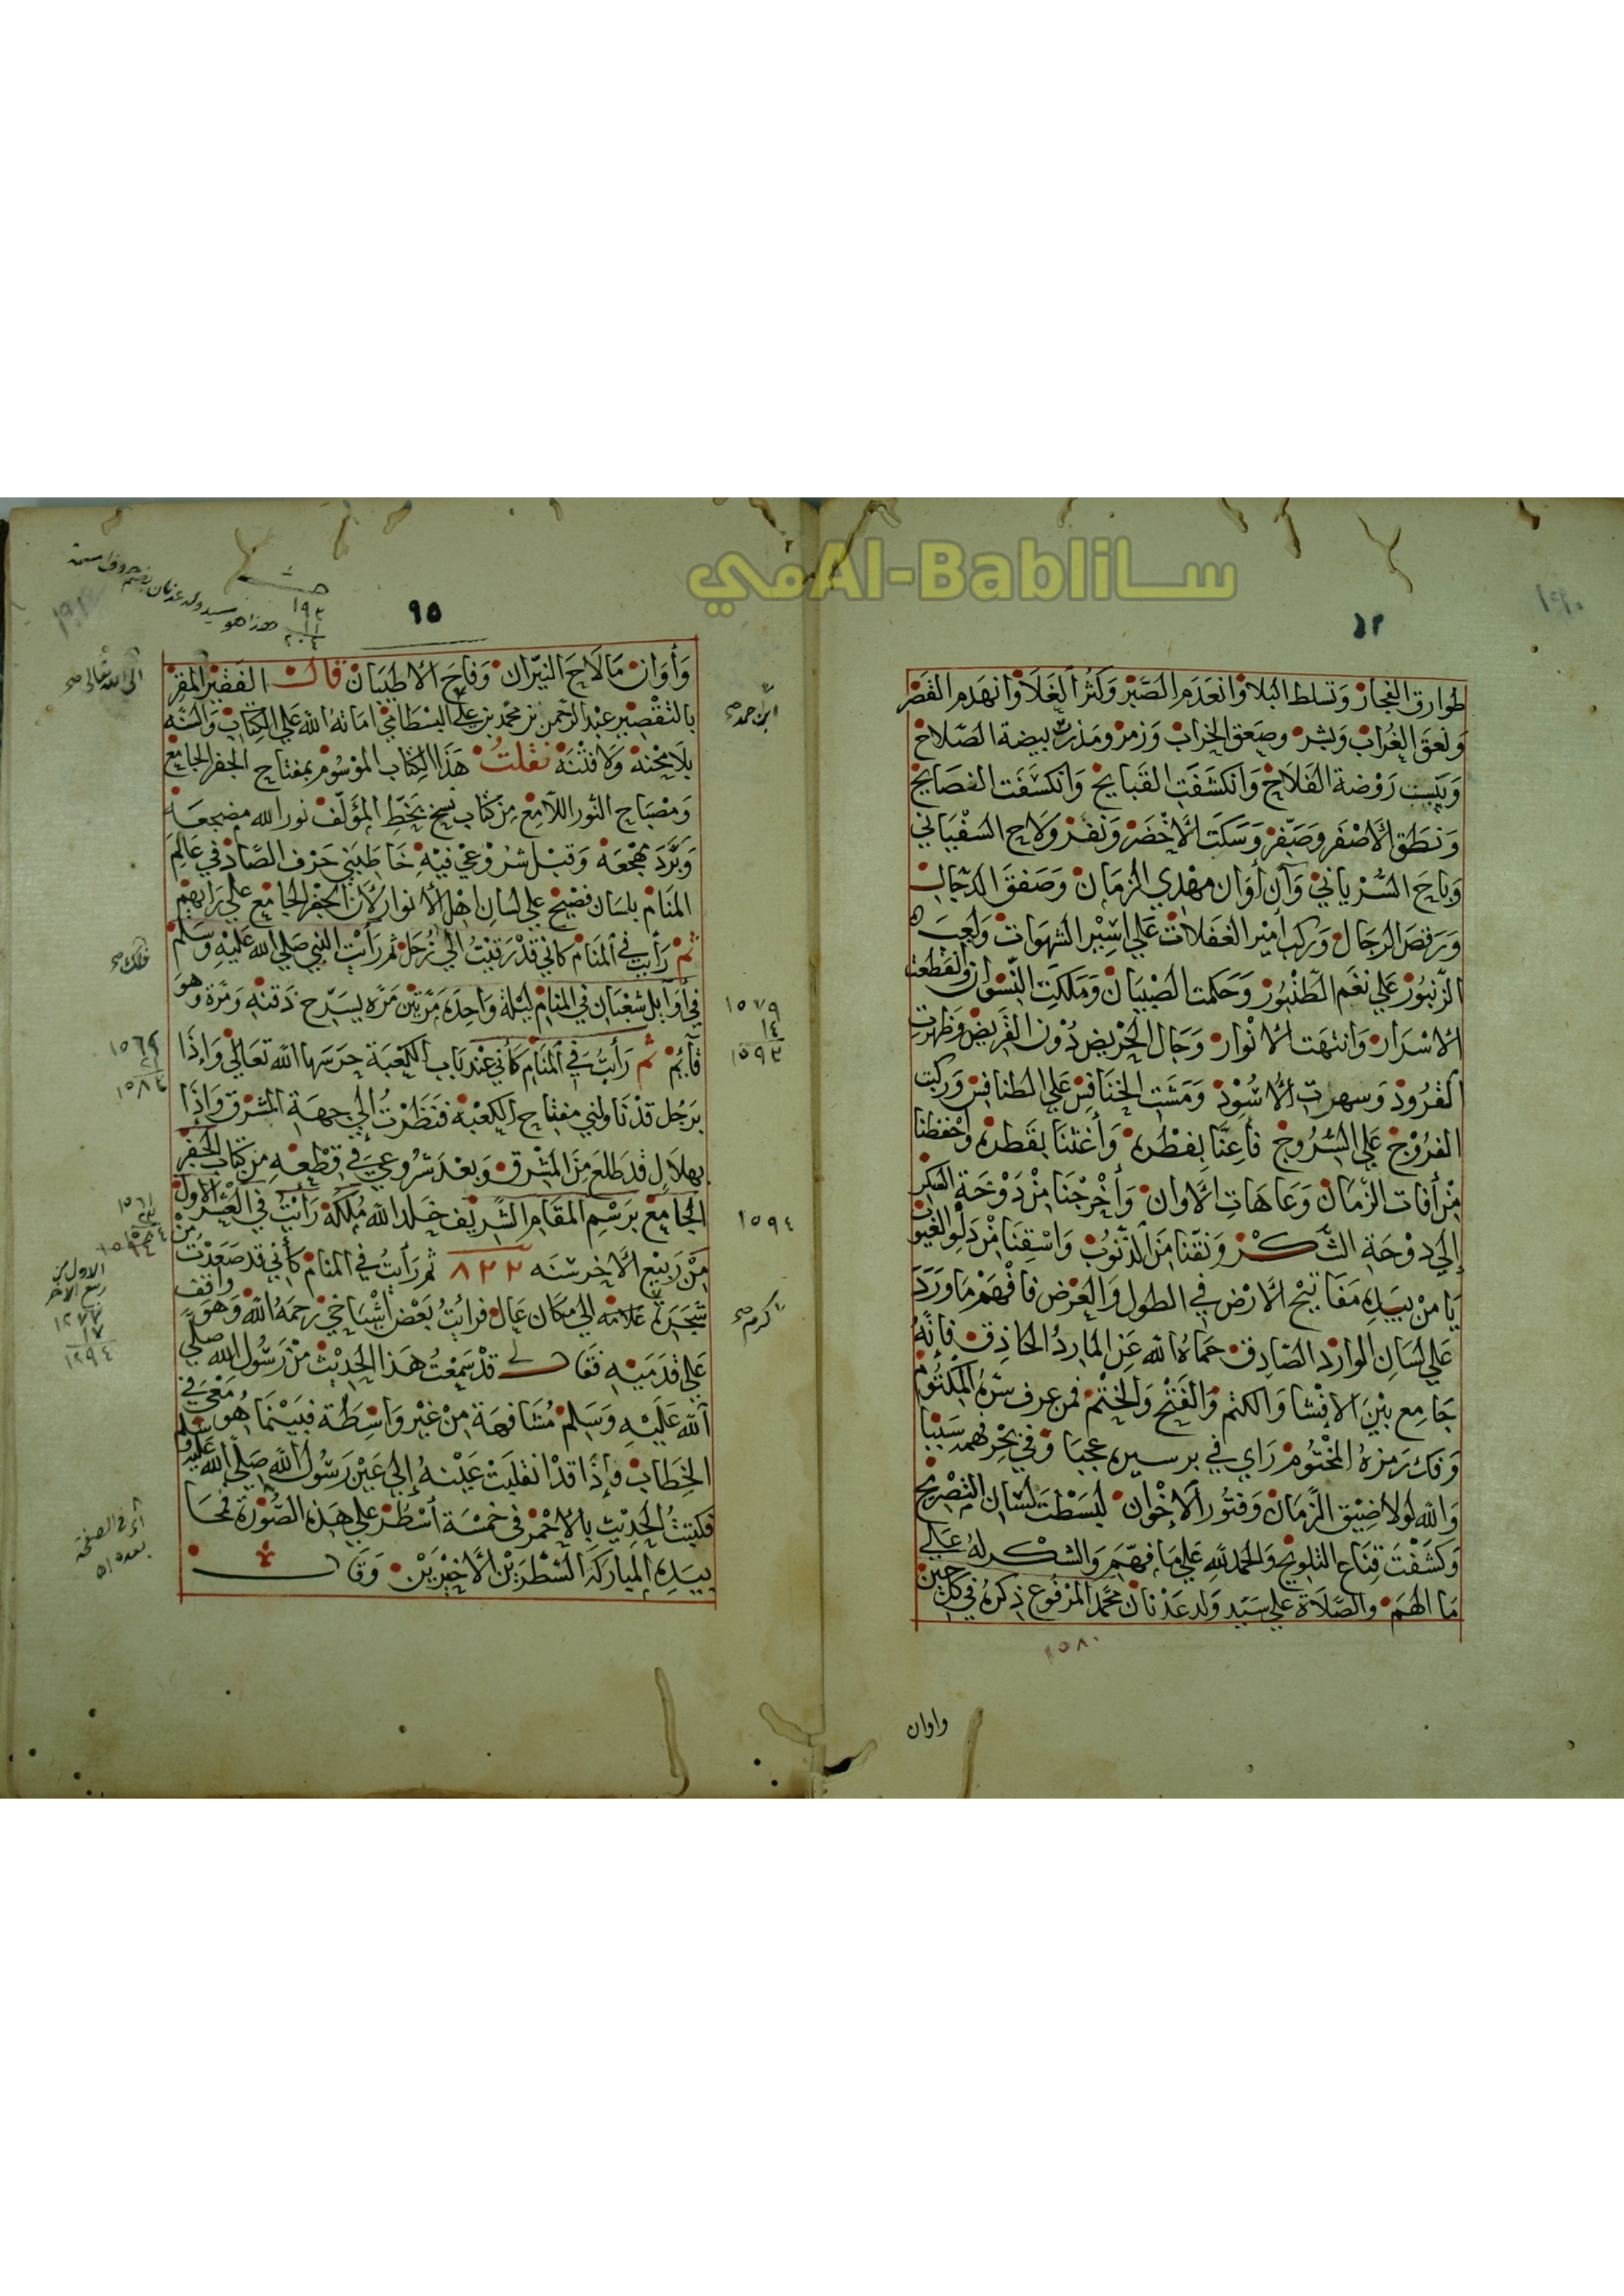 ساميAl-Bablي
٩٤
طوارق الفجار وتسلط البلا وانعدم الصبر وكثر الغلا وانهدم القصر
ونعق الغراب وبشر وصعق الخراب وزمر ومذرت بيضة الصلاح
ويبست روضة الفلاح وانكشفت القبايح وانكشفت الفضايح
ونطق الاصفر وصفر وسكت الاخضر ونفر ولاح السفياني
وباح السرياني وآن أوان مهدي الزمان وصفق الدجال
ورقص الرجال وركب أمير الغفلات علي اسير الشهوات ولعب
الزنبور علي نغم الطنبور وحكمت الصبيان وملكت النسوان وانقطعت
الاسرار وانتهت الانوار وحال الجريض دون القريض وظهرت
القرود وسهرت الاسود ومشت الخنافس علي الطنافس وركبت
الفروج علي السروج فأعنا بفطره وأغثنا بقطره واحفظنا
من أفات الزمان وعاهات الاوان وأخرجنا من دوحة السكر
إلي دوحة الشكر ونقنا من الذنوب واسقنا من دلو الغيوب
يا من بيده مفاتيح الارض في الطول والعرض فافهم ما ورد
علي لسان الوارد الصادق حماه الله عن المارد الحاذق فإنه
جامع بين الافشا والكتم والفتح والختم فمن عرف سره المكتوم
وفك رمزه المختوم راي في بر سيره عجبا وفي بحر فهمه سببا
والله لولا ضيق الزمان وفتور الاخوان لبسطت لسان التصريح
وكشفت قناع التلويح والحمد لله علي ما فهم والشكر له علي
ما الهم والصلاة علي سيد ولد عدنان محمد المرفوع ذكره في كل حين
١٥٨٠
واوان
٩٥
١٩٣
١١
٢٠٤
هذا هو سيد ولد عدنان
وأوان ما لاح النيران وفاح الاطيبان قال الفقير المقر
الى الله تعالى صح
بالتقصير عبد الرحمن بن محمد بن علي البسطامي اماته الله علي الكتاب والسنة
ابن احمد صح
بلا محنة ولا فتنة نقلت هذا الكتاب الموسوم بمفتاح الجفر الجامع
ومصباح النور اللامع من كتاب نسخ بخط المؤلف نور الله مضجعه
وبرد مهجعه وقبل شروعي فيه خاطبني حرف الصاد في عالم
المنام بلسان فصيح علي لسان اهل الانوار لأن الجفر الجامع علي رايهم
ثم رأيت في المنام كاني قد رقيت الي زحل ثم رأيت النبي صلي الله عليه وسلم
في أوآيل شعبان في المنام ليلة واحدة مرتين مرة يسرح ذقنه ومرة وهو
١٥٧٩
١٤
١٥٩٣
قآيم ثم رأيت في المنام كأني عند باب الكعبة حرسها الله تعالي وإذا
برجل قد ناولني مفتاح الكعبة فنظرت إلي جهة المشرق وإذا
بهلال قد طلع من المشرق وبعد شروعي في قطعه من كتاب الجفر
الجامع برسم المقام الشريف خلد الله ملكه رأيت في العشر الاول
١٥٩٤
من ربيع الاخر سنه ٨٢٢ ثم رأيت في المنام كأني قد صعدت من
الاول من
ربيع الاخر
١٢٧٧
١٧
١٢٩٤
شجرة علامة الي مكان عال فرايت بعض أشياخي رحمه الله وهو واقف
كرم صح
علي قدميه فقال لي قد سمعت هذا الحديث من رسول الله صلي
الله عليه وسلم مشافهة من غير واسطة فبينما هو معي في
الخطاب فإذا قد انقلبت عينه إلي عين رسول الله صلي الله عليه وسلم
فكتبت الحديث بالاحمر في خمسة أسطر علي هذه الصورة فمحا
بيده المباركة السطرين الاخيرين وقال